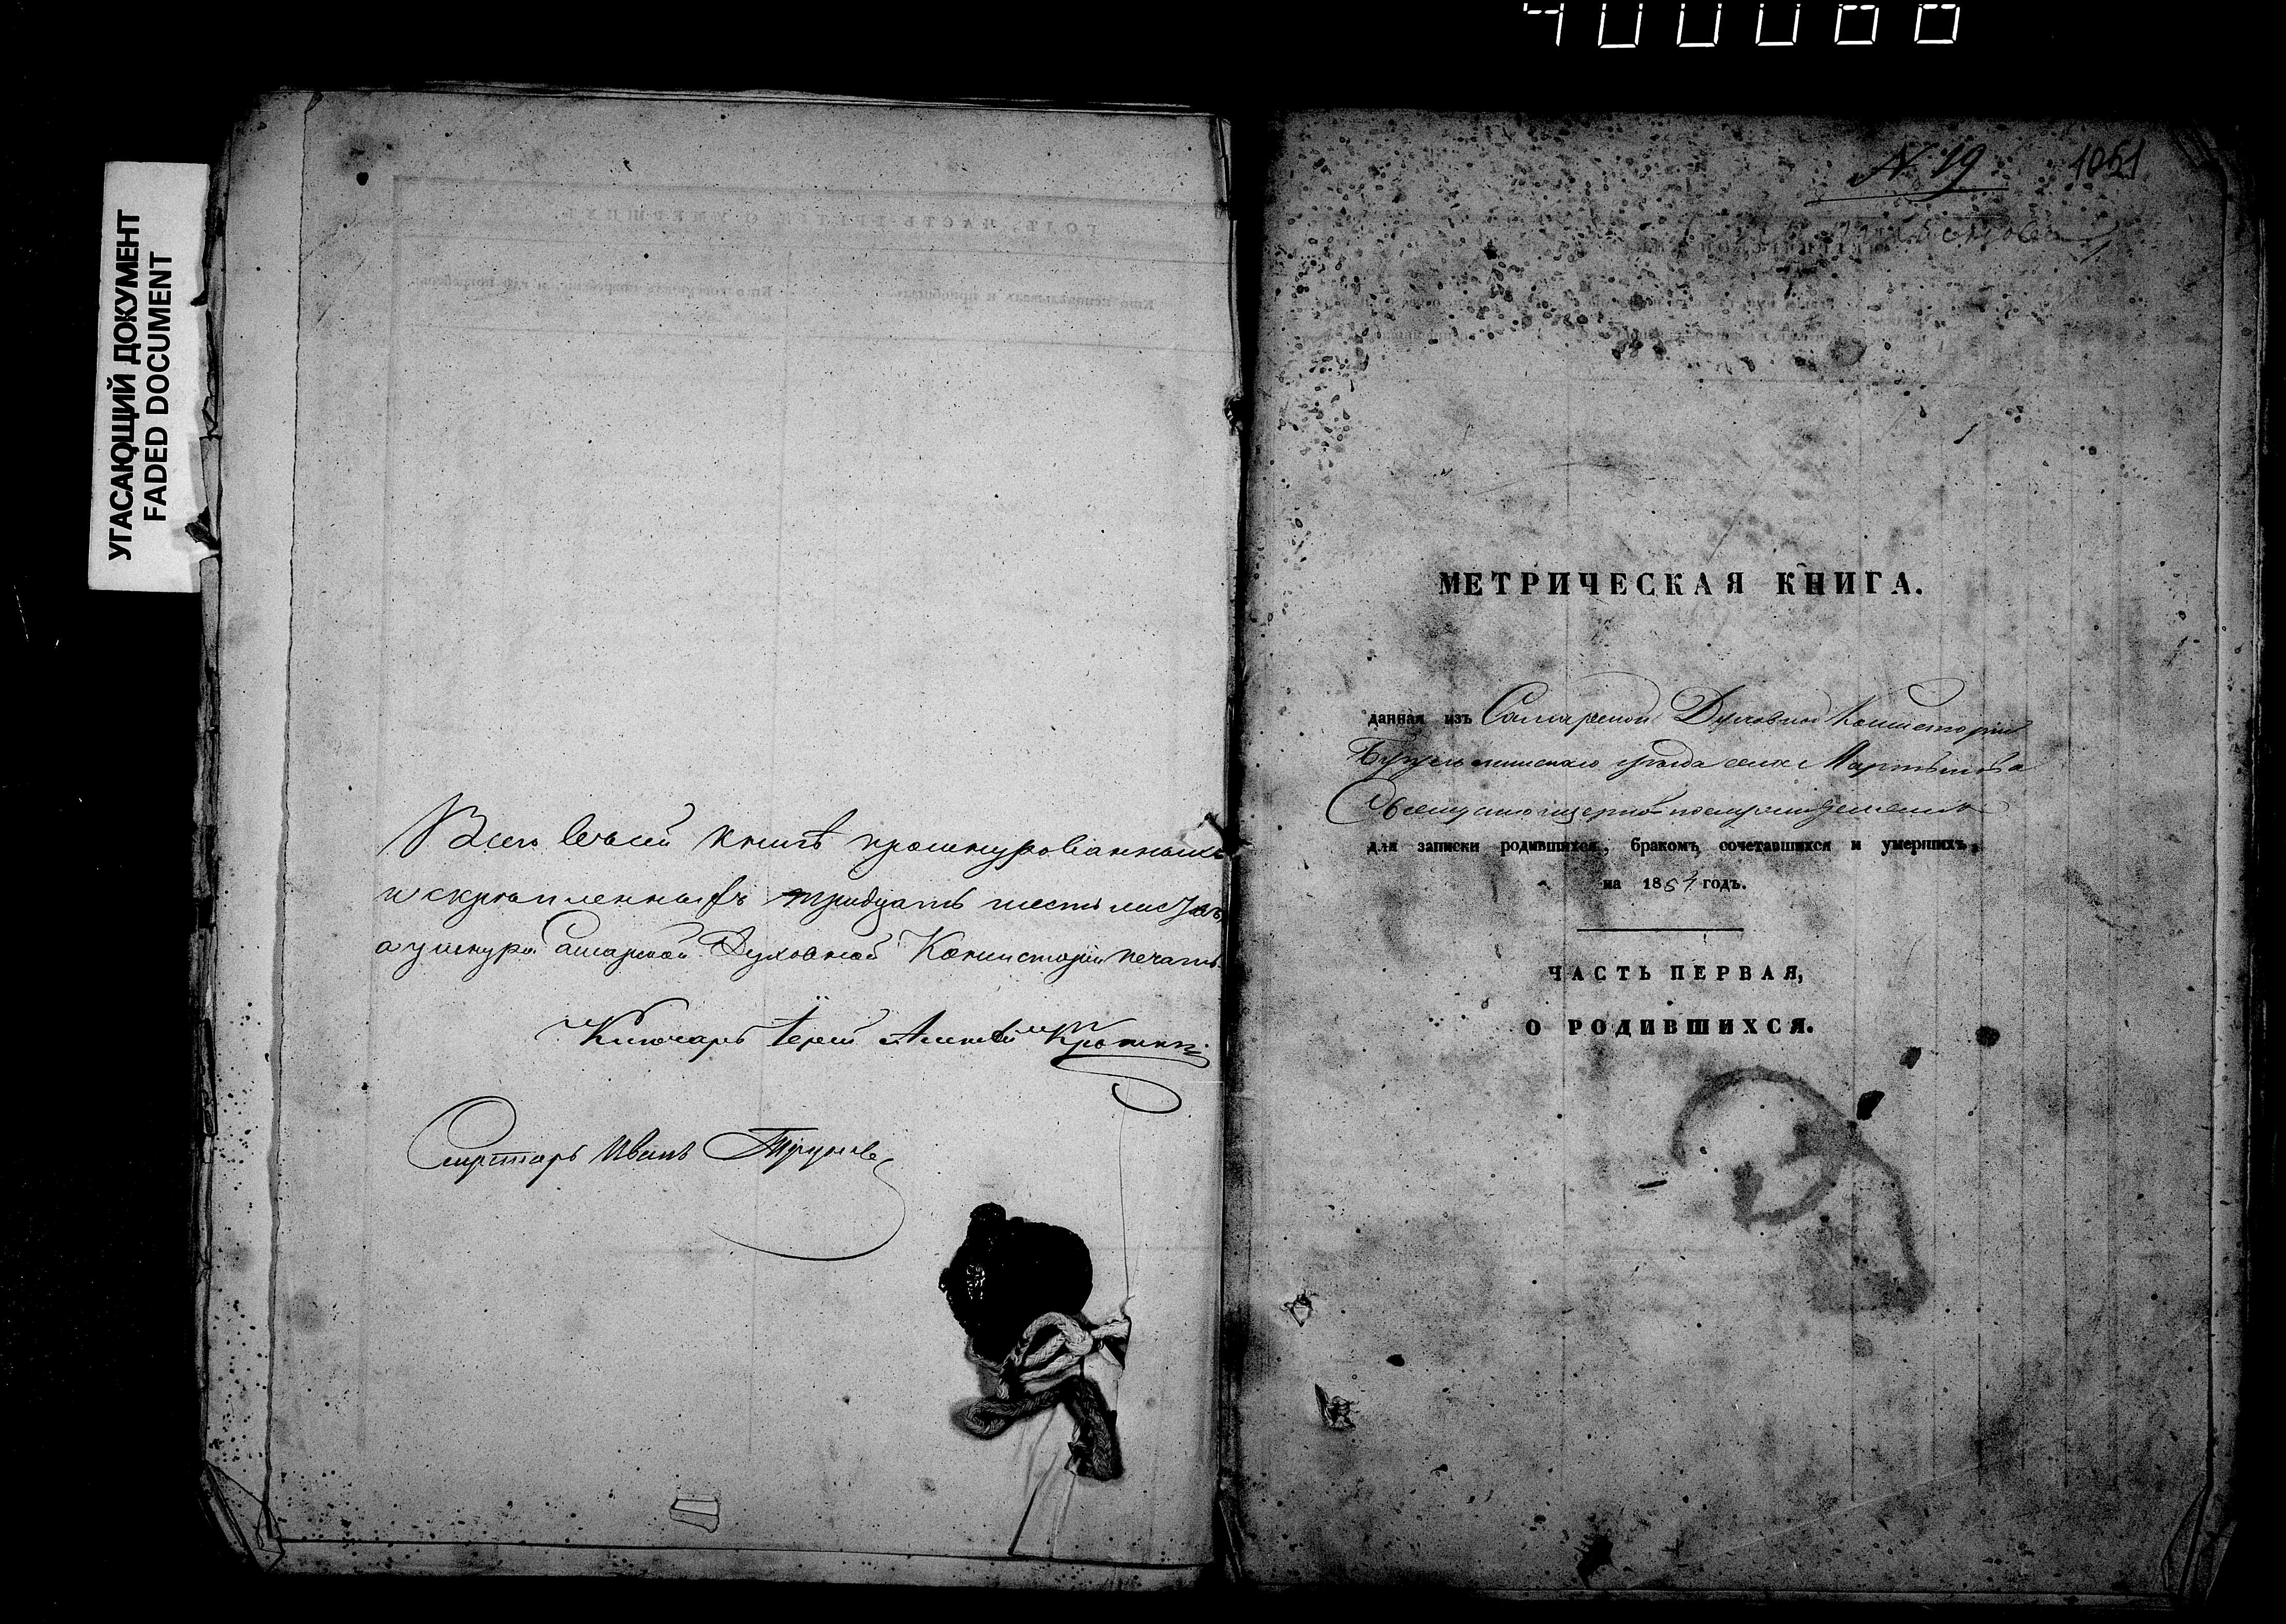 400066
УГАСАЮЩИЙ ДОКУМЕНТ
FADED DOCUMENT
Всего въ сей книгѣ прошнурованныхъ
и скрѣпленныхъ тридцать шесть листовъ,
а у шнура Самарской Духовной Консисторіи печать.
Ключарь Іерей Алексѣй
Секретарь Иванъ
N 19
1061
МЕТРИЧЕСКАЯ КНИГА.
данная изъ Самарской Духовной Консисторіи
Бугульминскаго уѣзда села
для записки родившихся, бракомъ сочетавшихся и умершихъ,
на 1854 годъ.
ЧАСТЬ ПЕРВАЯ,
О РОДИВШИХСЯ.